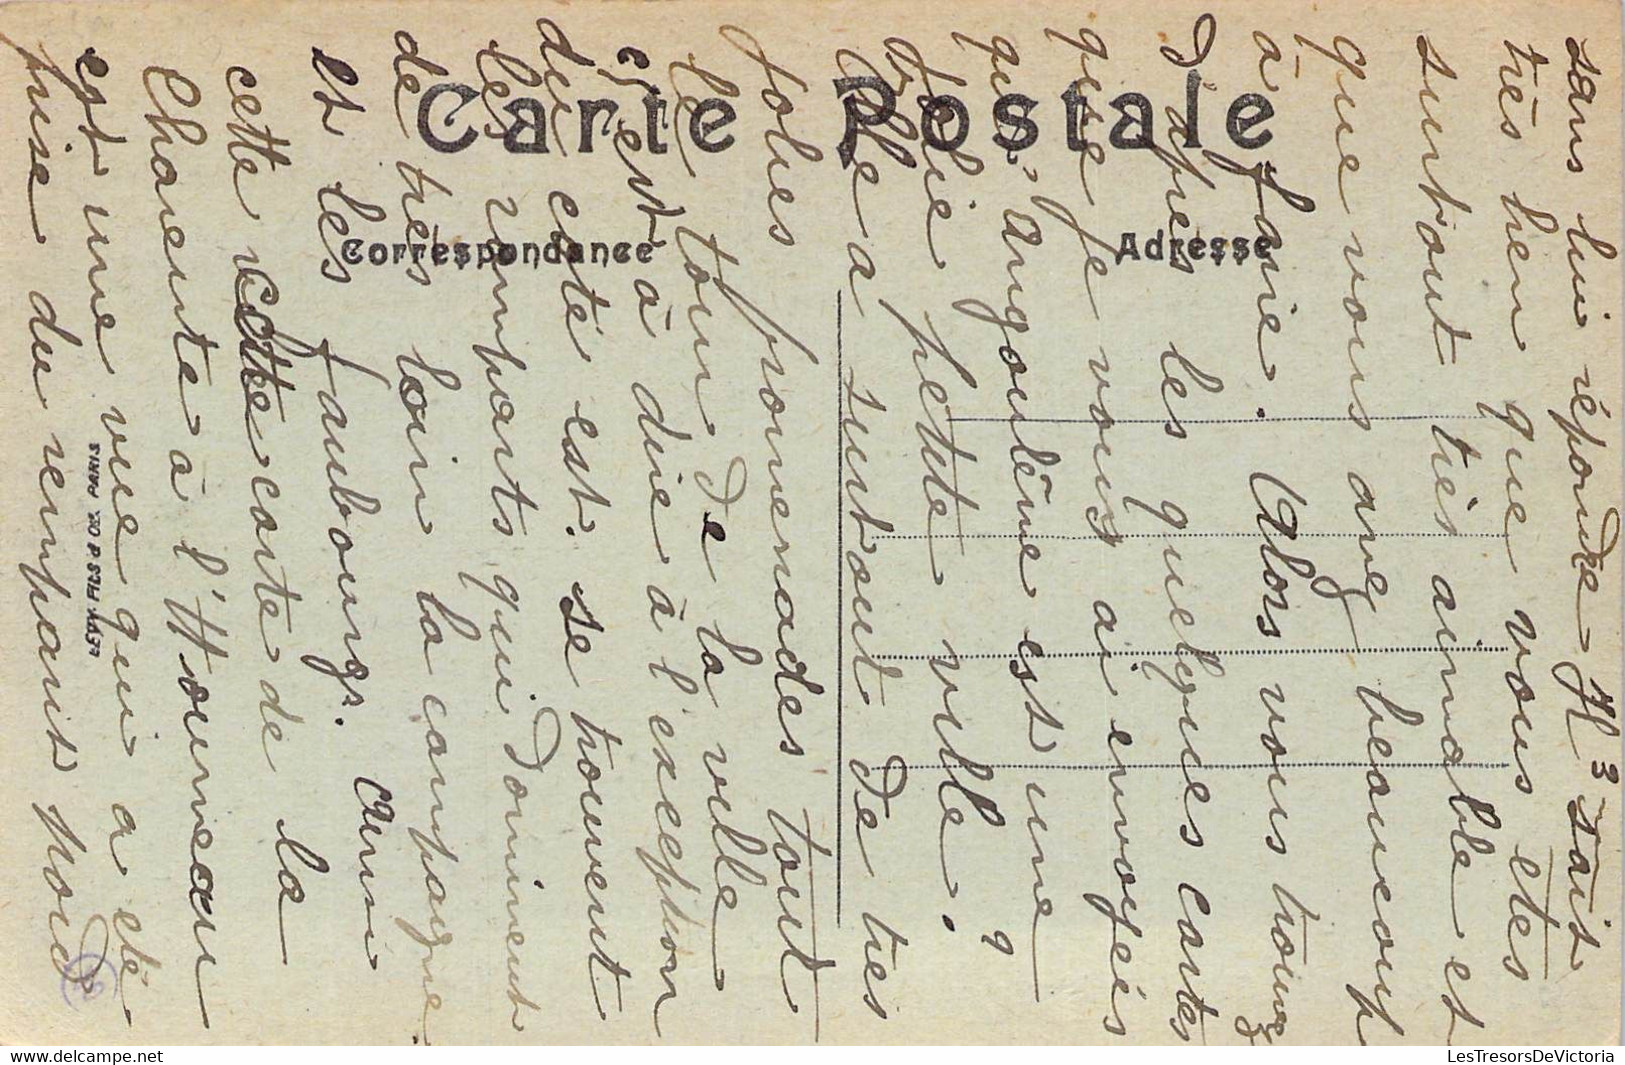 Carte Postale
Correspondance
Adresse
sans lui répondre H 3 sais
très bien que vous êtes
surtout très aimable et
que vous avez beaucoup
à faire. Alors vous trouvez
d'après les quelques cartes
que je vous ai envoyées
qu'Angoulême est une
jolie petite ville.
Elle a surtout de très
jolies promenades tout
le tour de la ville
c'est à dire à l'exception
du côté est. se trouvent
les remparts qui dominent
de très loin la campagne
et les faubourgs. Ainsi
cette carte de la
Charente à l'Houmeau
est une vue qui a été
prise du rempart nord
LEVY FILS & Cie, PARIS
LesTresorsDeVictoria
https://www.delcampe.net